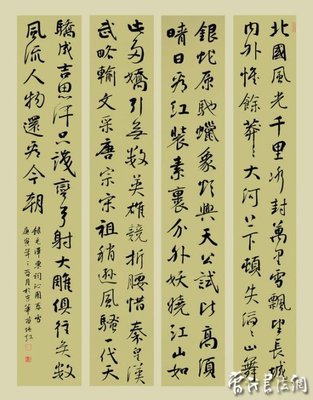 北國風光千里冰封萬里雪飄望長城
内外惟餘莽莽大河上下頓失滔滔山舞
銀蛇原馳蠟象欲與天公試比高須
晴日看紅裝素裹分外妖嬈江山如
此多嬌引無數英雄競折腰惜秦皇漢
武略輸文采唐宗宋祖稍遜風騷一代天
驕成吉思汗只識彎弓射大雕俱往矣數
風流人物還看今朝
錄毛澤東詞沁園春雪
庚寅年